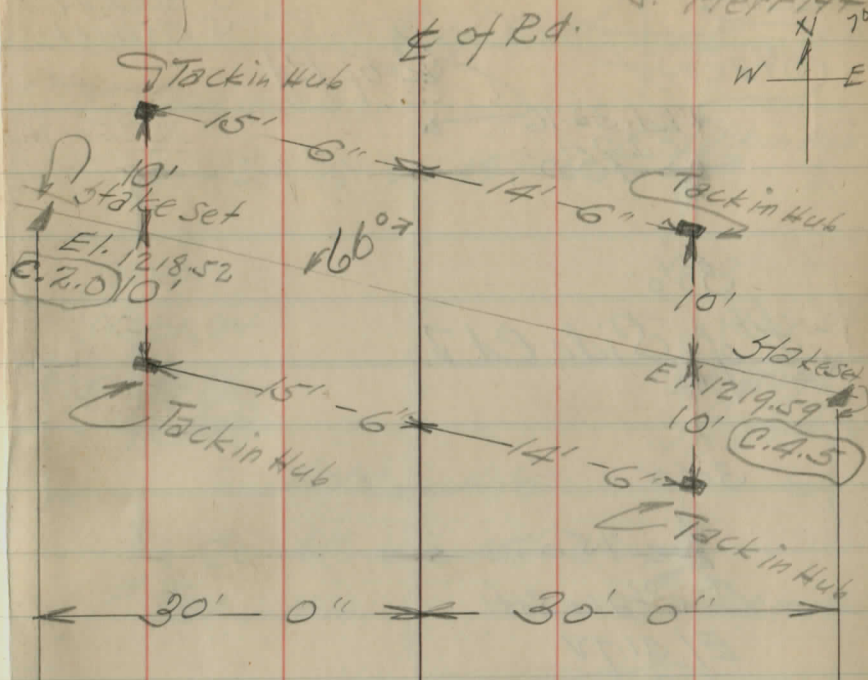 ℄ of Rd.
N
W E
Tack in Hub
15' 6"
14' 6"
Tack in Hub
10'
Stake Set
El. 1218.52
C.2.0
10'
66°
10'
Stake set
El 1219.59
C.4.5
10'
15' - 6"
14' - 6"
Tack in Hub
Tack in Hub
30' 0" 30' 0"